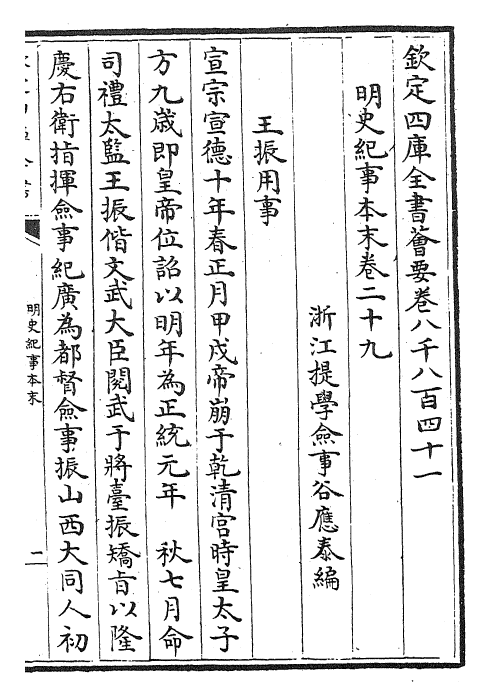 欽定四庫全書薈要卷八千八百四十一
明史紀事本末卷二十九
浙江提學僉事谷應泰編
王振用事
宣宗宣德十年春正月甲戌帝崩于乾清宫時皇太子
方九歲即皇帝位詔以明年為正統元年 秋七月命
司禮太監王振偕文武大臣閱武于將臺振矯旨以隆
慶右衛指揮僉事紀廣為都督僉事振山西大同人初
明史紀事本末
二